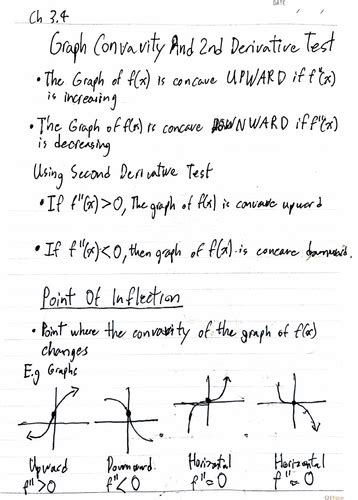 DATE
Ch 3.4
Graph Convavity And 2nd Derivative Test
• The Graph of f(x) is concave UPWARD if f"(x)
is increasing
• The Graph of f(x) is concave DOWNWARD if f"(x)
is decreasing
Using Second Derivative Test
• If f"(x) > 0, The graph of f(x) is concave upward
• If f"(x) < 0, then graph of f(x) is concave downward.
Point Of Inflection
• Point where the convavity of the graph of f(x)
changes
E.g Graphs
Upward Downward Horizontal Horizontal
f" > 0 f" < 0 f" = 0 f" = 0